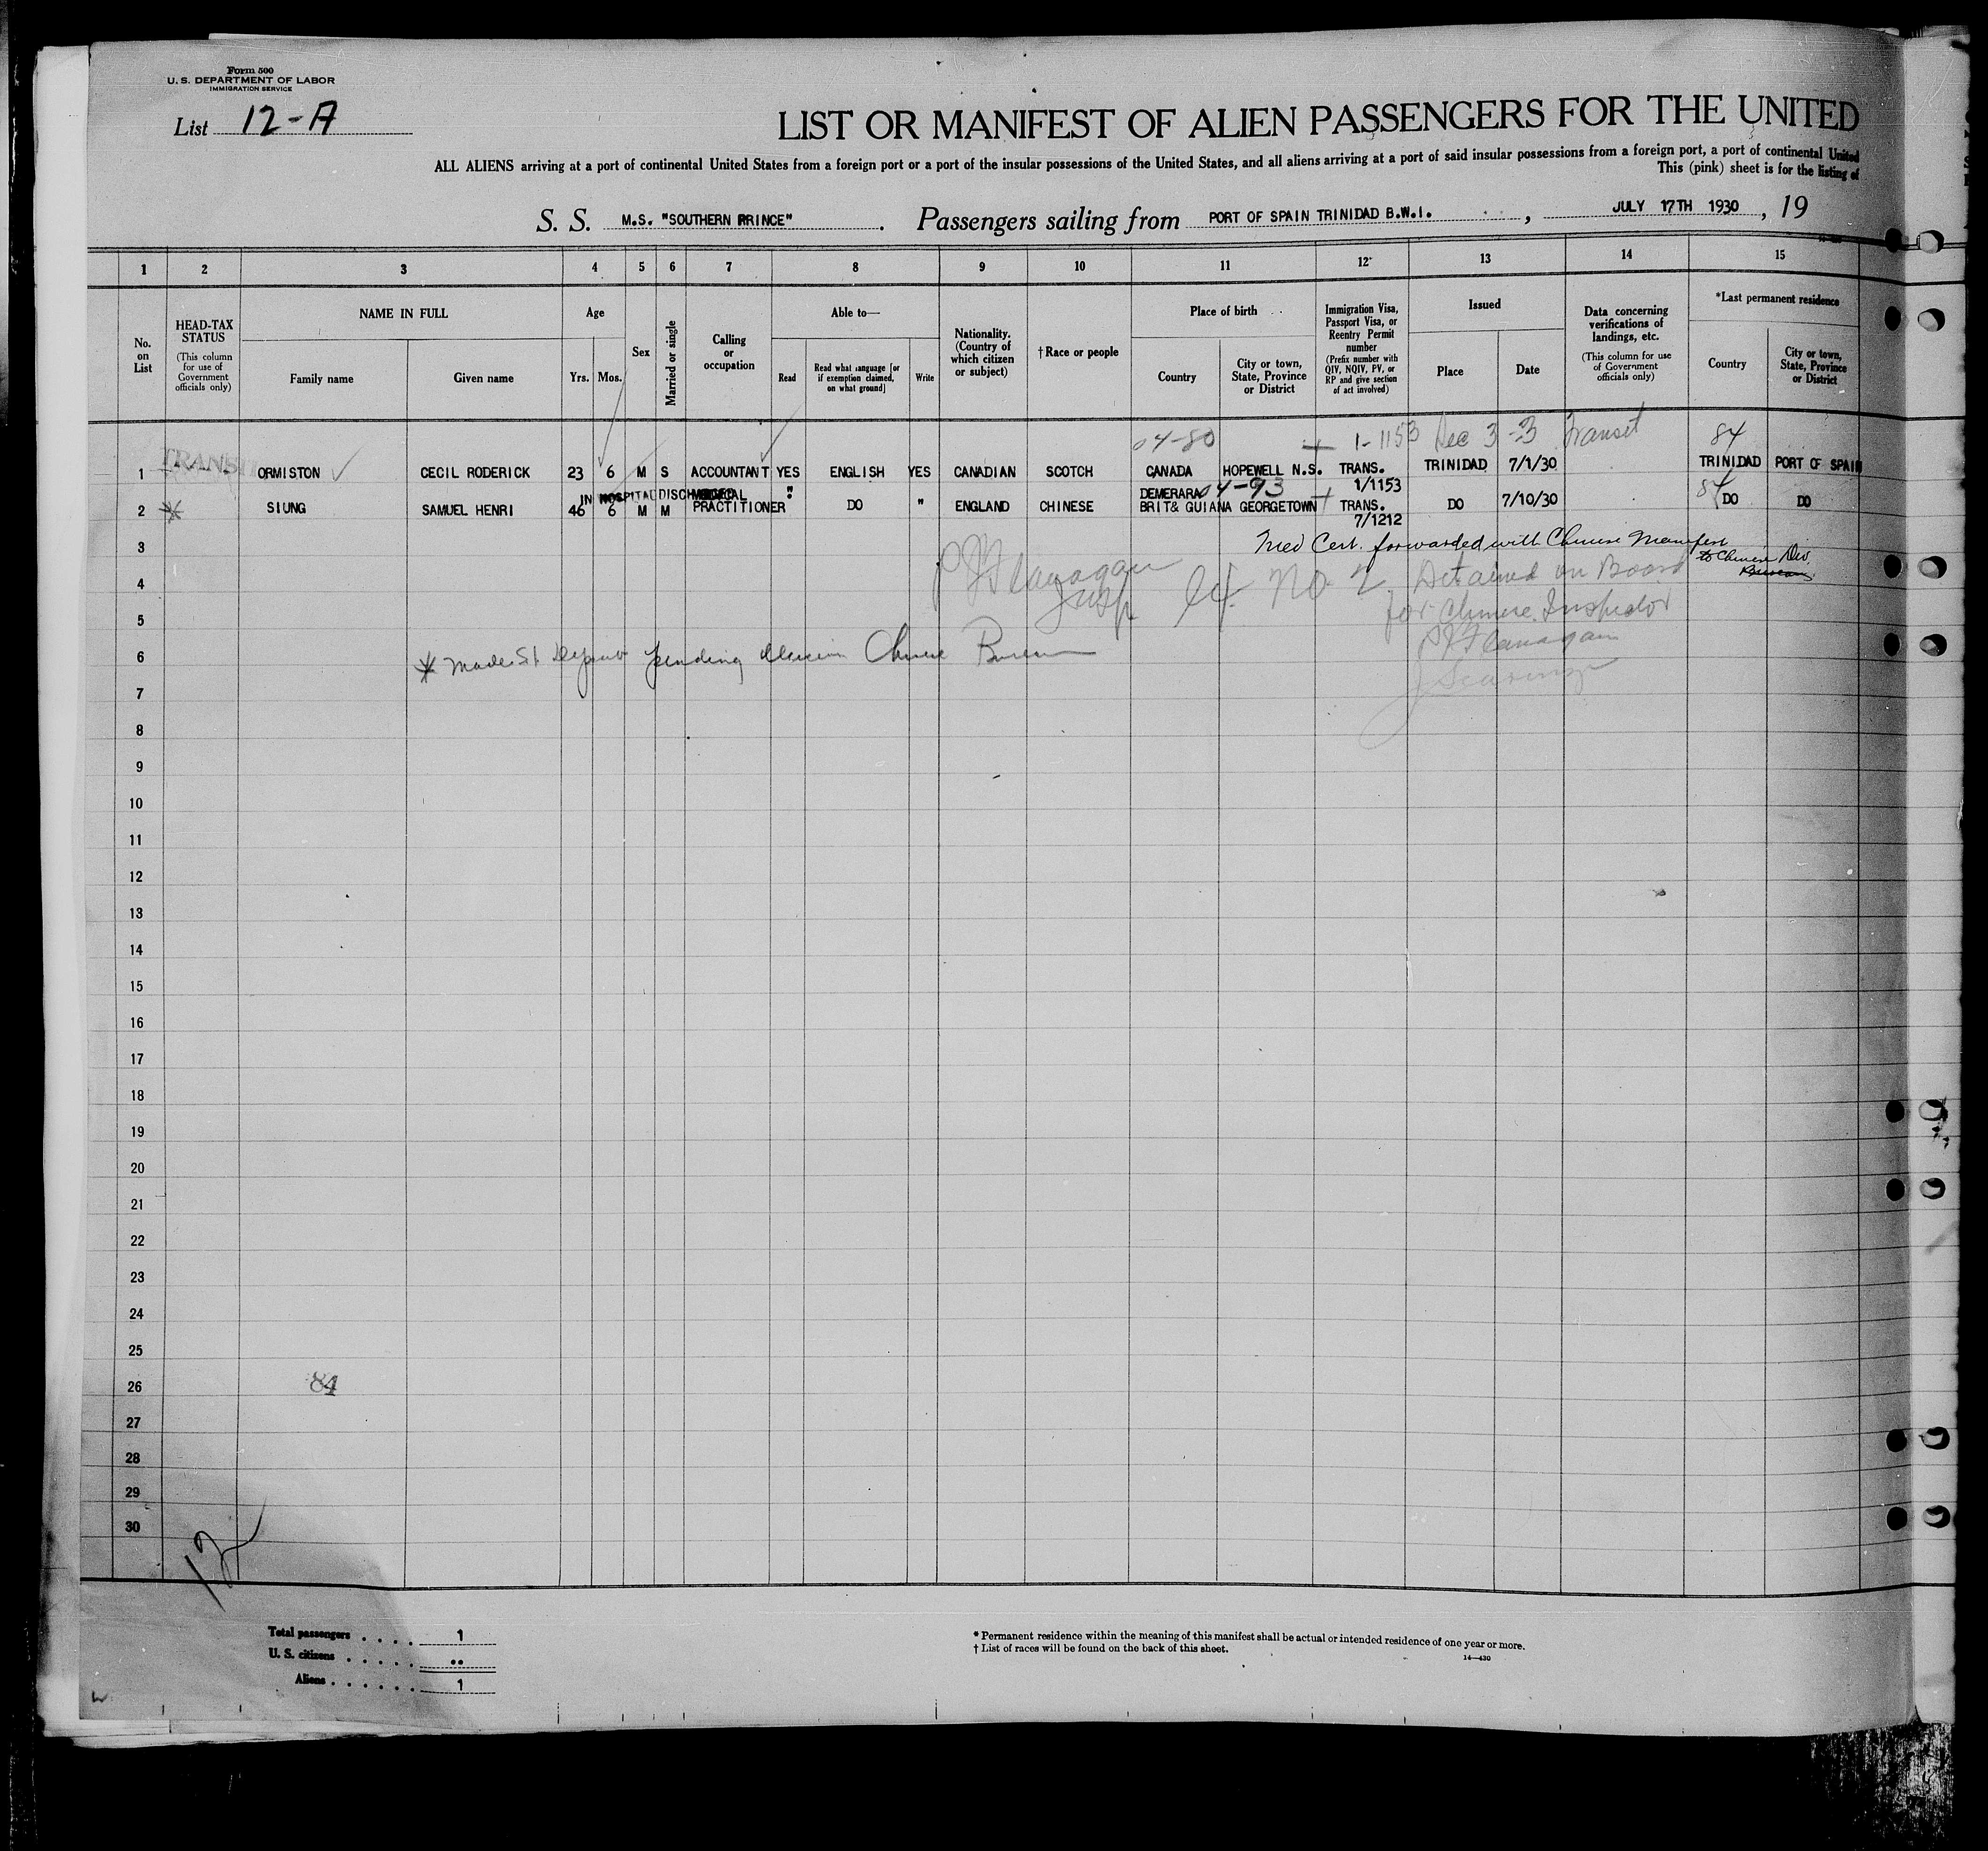 Form 500
U. S. DEPARTMENT OF LABOR
IMMIGRATION SERVICE
List 12-A
LIST OR MANIFEST OF ALIEN PASSENGERS FOR THE UNITED
ALL ALIENS arriving at a port of continental United States from a foreign port or a port of the insular possessions of the United States, and all aliens arriving at a port of said insular possessions from a foreign port, a port of continental United
This (pink) sheet is for the listing of
S. S. M.S. "SOUTHERN PRINCE". Passengers sailing from PORT OF SPAIN TRINIDAD B.W.I., JULY 17TH 1930, 19
1 2 3 4 5 6 7 8 9 10 11 12 13 14 15
No. on List
HEAD-TAX STATUS (This column for use of Government officials only)
NAME IN FULL
Family name
Given name
Age
Yrs. Mos.
Sex
Married or single
Calling or occupation
Able to—
Read
Read what language [or if exemption claimed, on what ground]
Write
Nationality. (Country of which citizen or subject)
†Race or people
Place of birth
Country
City or town, State, Province or District
Immigration Visa, Passport Visa, or Reentry Permit number (Prefix number with QIV, NQIV, PV, or RP and give section of act involved)
Issued
Place
Date
Data concerning verifications of landings, etc. (This column for use of Government officials only)
*Last permanent residence
Country
City or town, State, Province or District
04-80 1-1153 Dec 3 -3 Transit 84
1 TRANSIT ORMISTON CECIL RODERICK 23 6 M S ACCOUNTANT YES ENGLISH YES CANADIAN SCOTCH CANADA HOPEWELL N.S. TRANS. 1/1153 TRINIDAD 7/1/30 TRINIDAD PORT OF SPAIN
IN HOSPITAL DISCHARGED
2 SIUNG SAMUEL HENRI 46 6 M M MEDICAL PRACTITIONER " DO " ENGLAND CHINESE DEMERARA BRIT& GUIANA GEORGETOWN 04-93 TRANS. 7/1212 DO 7/10/30 84 DO DO
3 Med Cert. forwarded with Chinese Manifest
to Chinese Div.
Bureau
4 P J Flanagan No 2 Detained on Board
Insp
5 for Chinese Inspector
6 * Made S.I. pending decision Chinese Bureau
P J Flanagan
7
8
9
10
11
12
13
14
15
16
17
18
19
20
21
22
23
24
25
26 84
27
28
29
30
12
Total passengers . . . . 1
U. S. citizens . . . . . ..
Aliens . . . . . . 1
* Permanent residence within the meaning of this manifest shall be actual or intended residence of one year or more.
† List of races will be found on the back of this sheet.
14—430